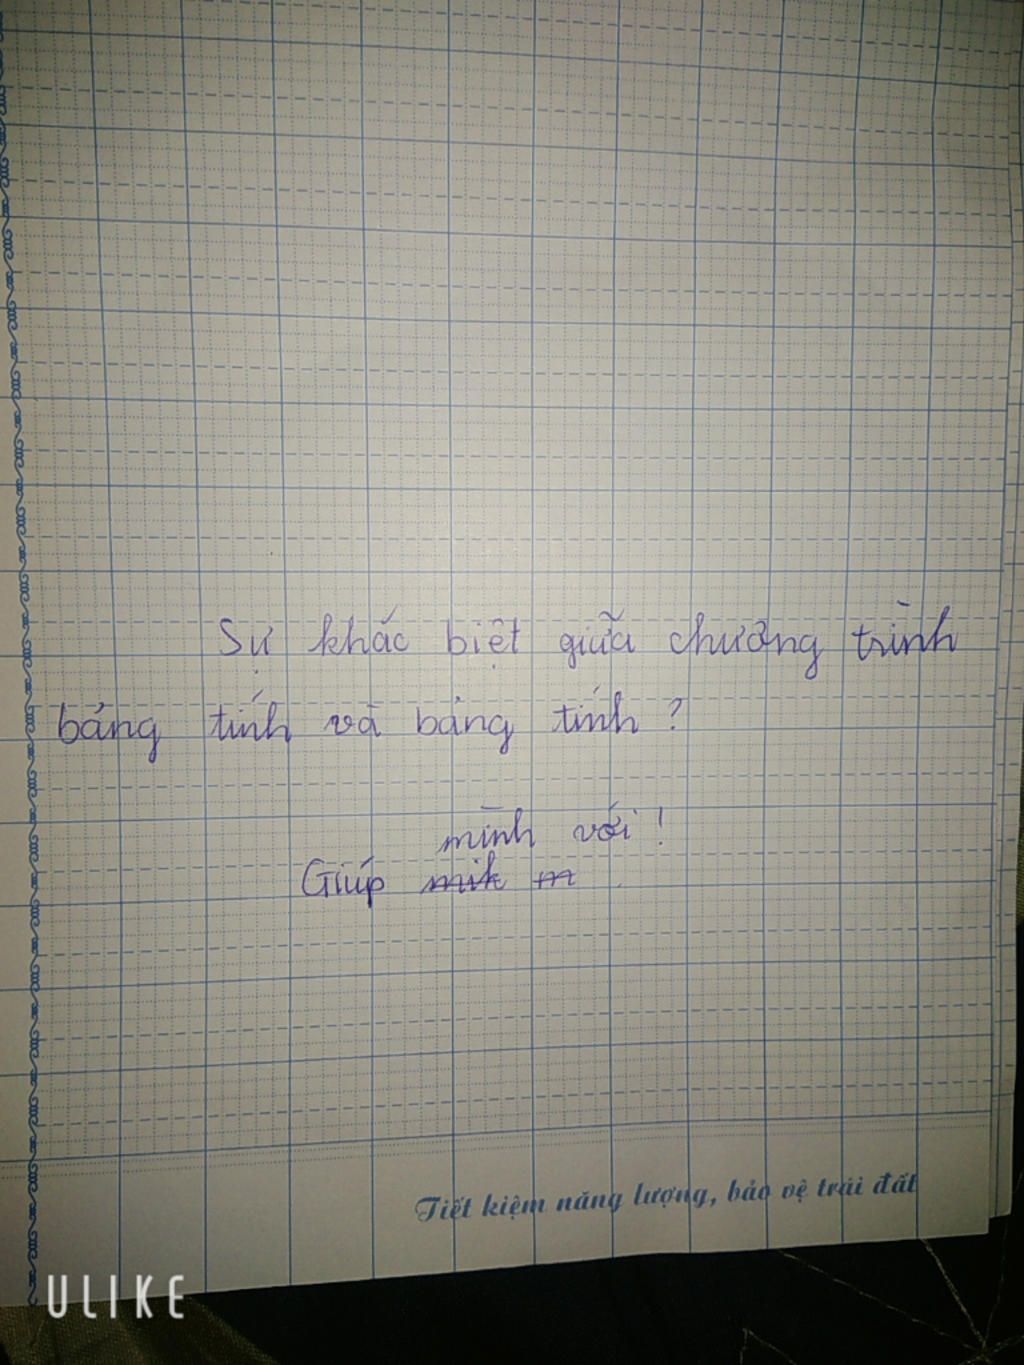 Sự khác biệt giữa chương trình
bảng tính và bảng tính ?
mình với !
Giúp mik m
Tiết kiệm năng lượng, bảo vệ trái đất
ULIKE